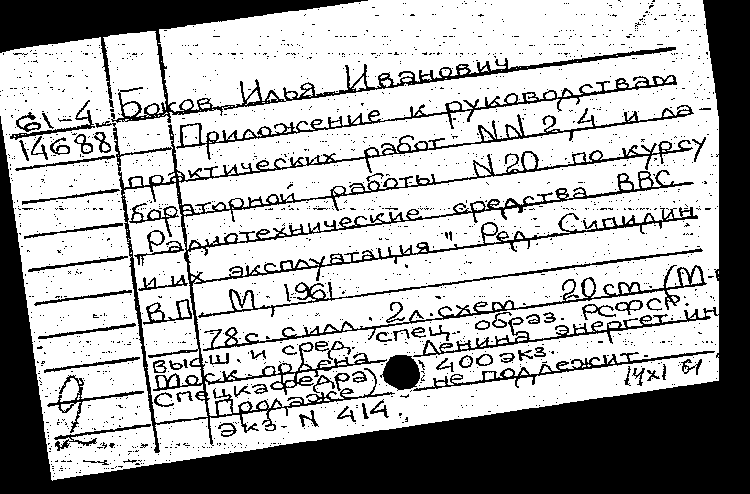 61-4 Боков, Илья Иванович
14688 Приложение к руководствам
практических работ NN 2,4 и ла-
бораторной работы N 20 по курсу
"Радиотехнические средства ВВС
и их эксплуатация". Ред. Сипидин
В.П. М., 1961.
78 с. с илл.; 2 л. схем. 20 cm. (М-во
высш. и сред. спец. образ. РСФСР.
Моск. ордена Ленина энергет. ин
Спецкафедра) 400 экз.
Продаже не подлежит.
экз. N 414.
14x1 61